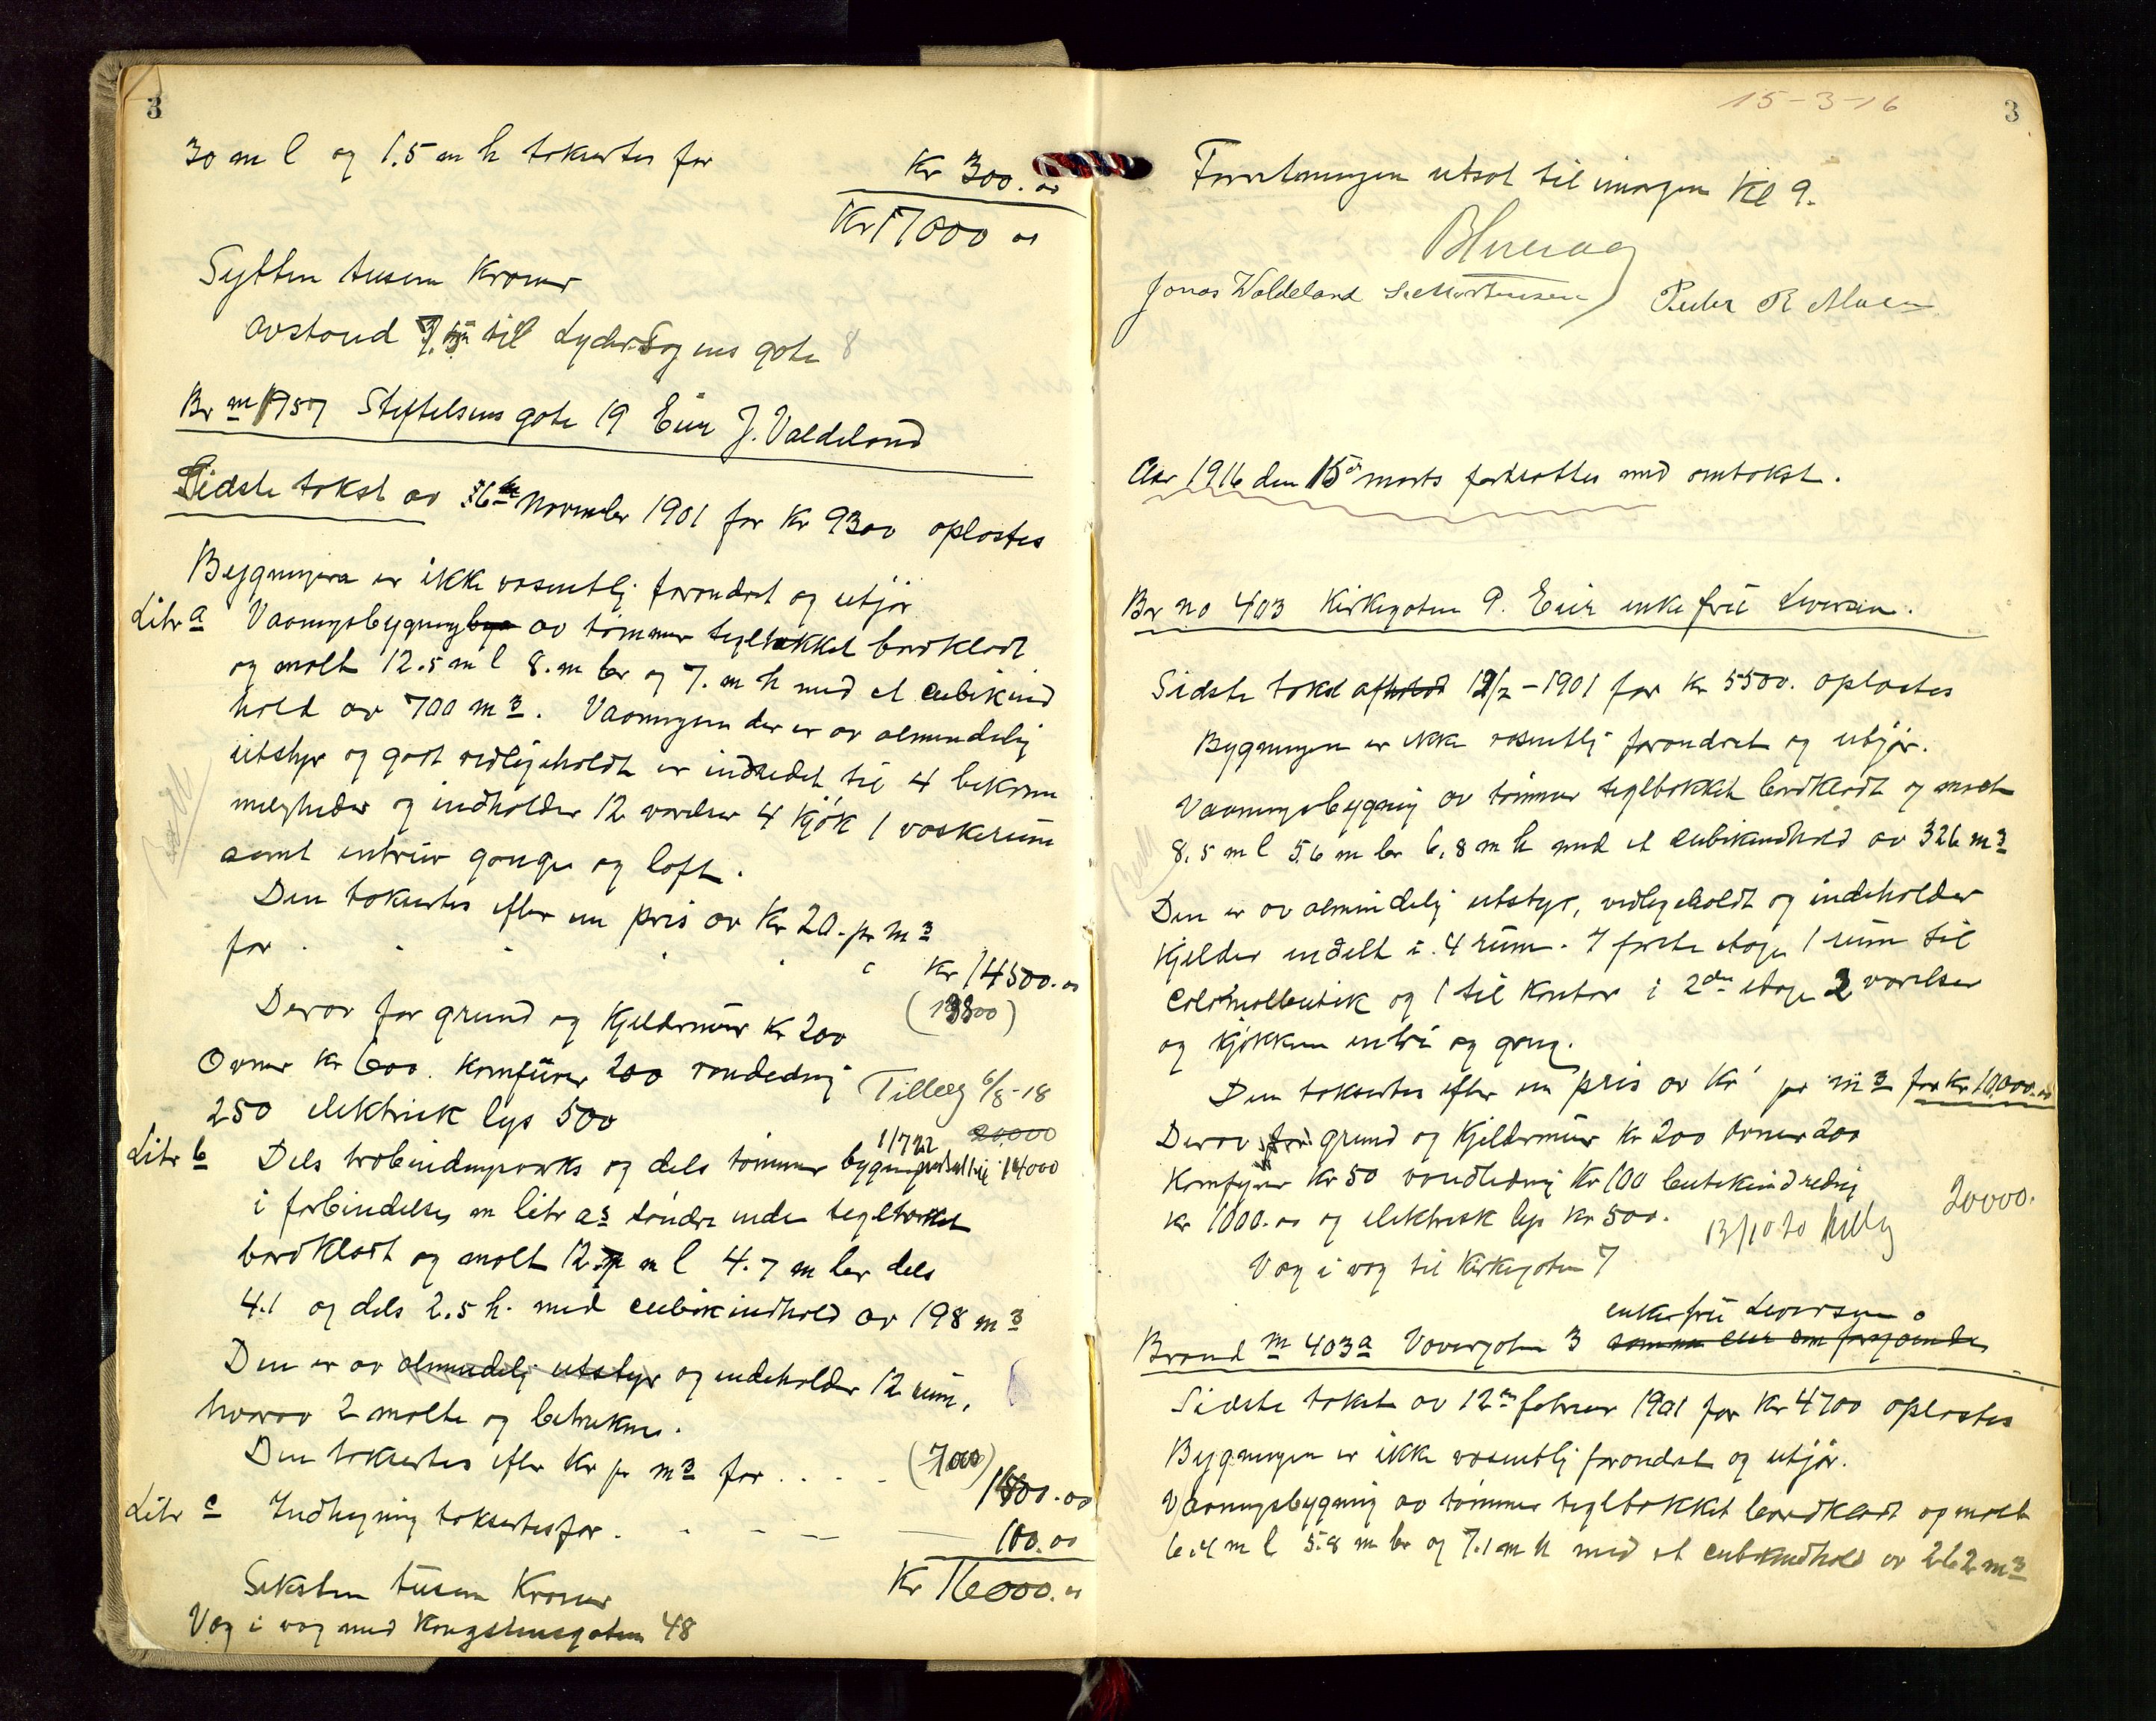 3
30 m l og 1.5 m h takseres for Kr 300.00
Kr 17000 00
Sytten tusen Kroner
avstand 7.5 m til Lyder Sagens gate 8
Br no 1957 Stiftelsens gate 19 Eier J. Valdeland
Sidste takst av 26de November 1901 for Kr 9300 oplæstes
Bygningerne er ikke væsentlig forandret og utgjør
Litr a Vaaningsbygning av tømmer tegltækket bordklædt
og malt 12.5 m l 8. m br og 7. m h med et cubikind
hold av 700 m3. Vaaningen der er av almindelig
utstyr og godt vedligeholdt er indredet til 4 bekvem
meligheder og indholder 12 værelser 4 kjøk 1 vaskerum
samt entreer gange og loft.
Den takseres efter en pris av Kr 20. pr m3
for Kr 14500.00
(13800)
Derav for grund og Kjeldermur Kr 200
Ovner Kr 600. Komfurer 200 vandledning
250 elektrisk lys 500
Tillæg 6/8-18
20,000
1/7 22
14000
Litr b Dels utbindingsverks og dels tømmer bygning
i forbindelse m litr as søndre ende tegltækket
bordklædt og malt 12. m l 4.7 m br dels
4.1 og dels 2.5 h. med cubikindhold av 198 m3
Den er av almindelig utstyr og indeholder 12 rum,
hvorav 2 malte og betrukne.
Den takseres efter Kr pr m3 for . . . . (700)
1400.00
Litr c Indhegning takseres for . 100.00
Seksten tusen Kroner Kr 16000.00
Væg i væg med Kongsteensgaten 48
15-3-16
3
Forretningen utsat til imorgen Kl 9.
Jonas Waldeland S. Mortensen Peder R Moen
Aar 1916 den 15de marts fortsattes med omtakst.
Br no 403 Kirkegaten 9. Eier enkefru Iversen.
Sidste takst afholdt 12/2-1901 for Kr 5500. oplæstes
Bygningen er ikke væsentlig forandret og utgjør.
Vaaningsbygning av tømmer tegltækket bordklædt og malt
8.5 m l 5.6 m br 6.8 m h med et cubikindhold av 326 m3
Den er av almindelig utstyr, vedligeholdt og indeholder
Kjelder indelt i 4 rum. I første etage 1 rum til
Colonialbutik og 1 til Kontor i 2den etage 2 værelser
og kjøkken entre og gang.
Den takseres efter en pris av Kr pr m3 for Kr 10,000.00
Derav for grund og Kjeldermur Kr 200 ovner 200
Komfyrer Kr 50 vandledning Kr 100 butikindredning
Kr 1000.00 og elektrisk lys Kr 500.
13/10 20 tillæg 20000.
Væg i væg til Kirkegaten 7
enkefru Iversen
Brand no 403a Vaagegaten 3 samme eier som foregaaende
Sidste takst av 12te februar 1901 for Kr 4700 oplæstes
Bygningen er ikke væsentlig forandret og utgjør.
Vaaningsbygning av tømmer tegltækket bordklædt og malt
6.4 m l 5.8 m br og 7.1 m h med et cubikindhold av 262 m3